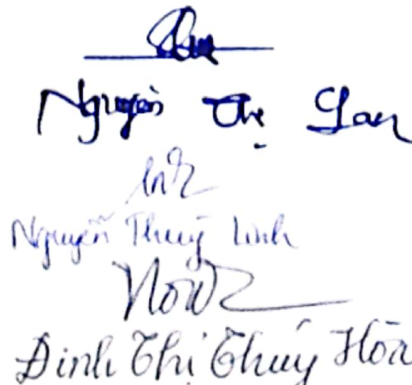 Nguyễn Thị Lan
Nguyễn Thuỳ Linh
Đinh Thị Thuý Hòa